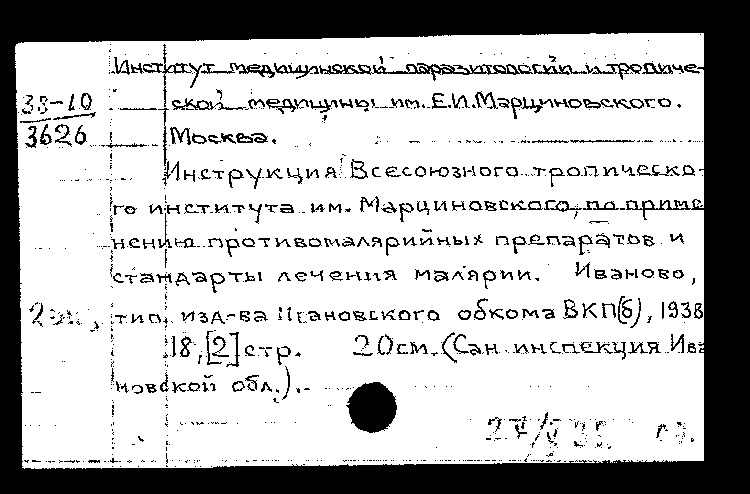 Институт медицинской паразитологии и тропиче-
38-10 ской медицины им. Е.И.Марциновского.
3626 Москва.
Инструкция Всесоюзного тропическо-
го института им. Марциновского, по приме
нению противомалярийных препаратов и
стандарты лечения малярии. Иваново,
тип. изд-ва Ивановского обкома ВКП(б), 1938
18, [2] стр. 20см. (Сан. инспекция Ива
новской обл.).-